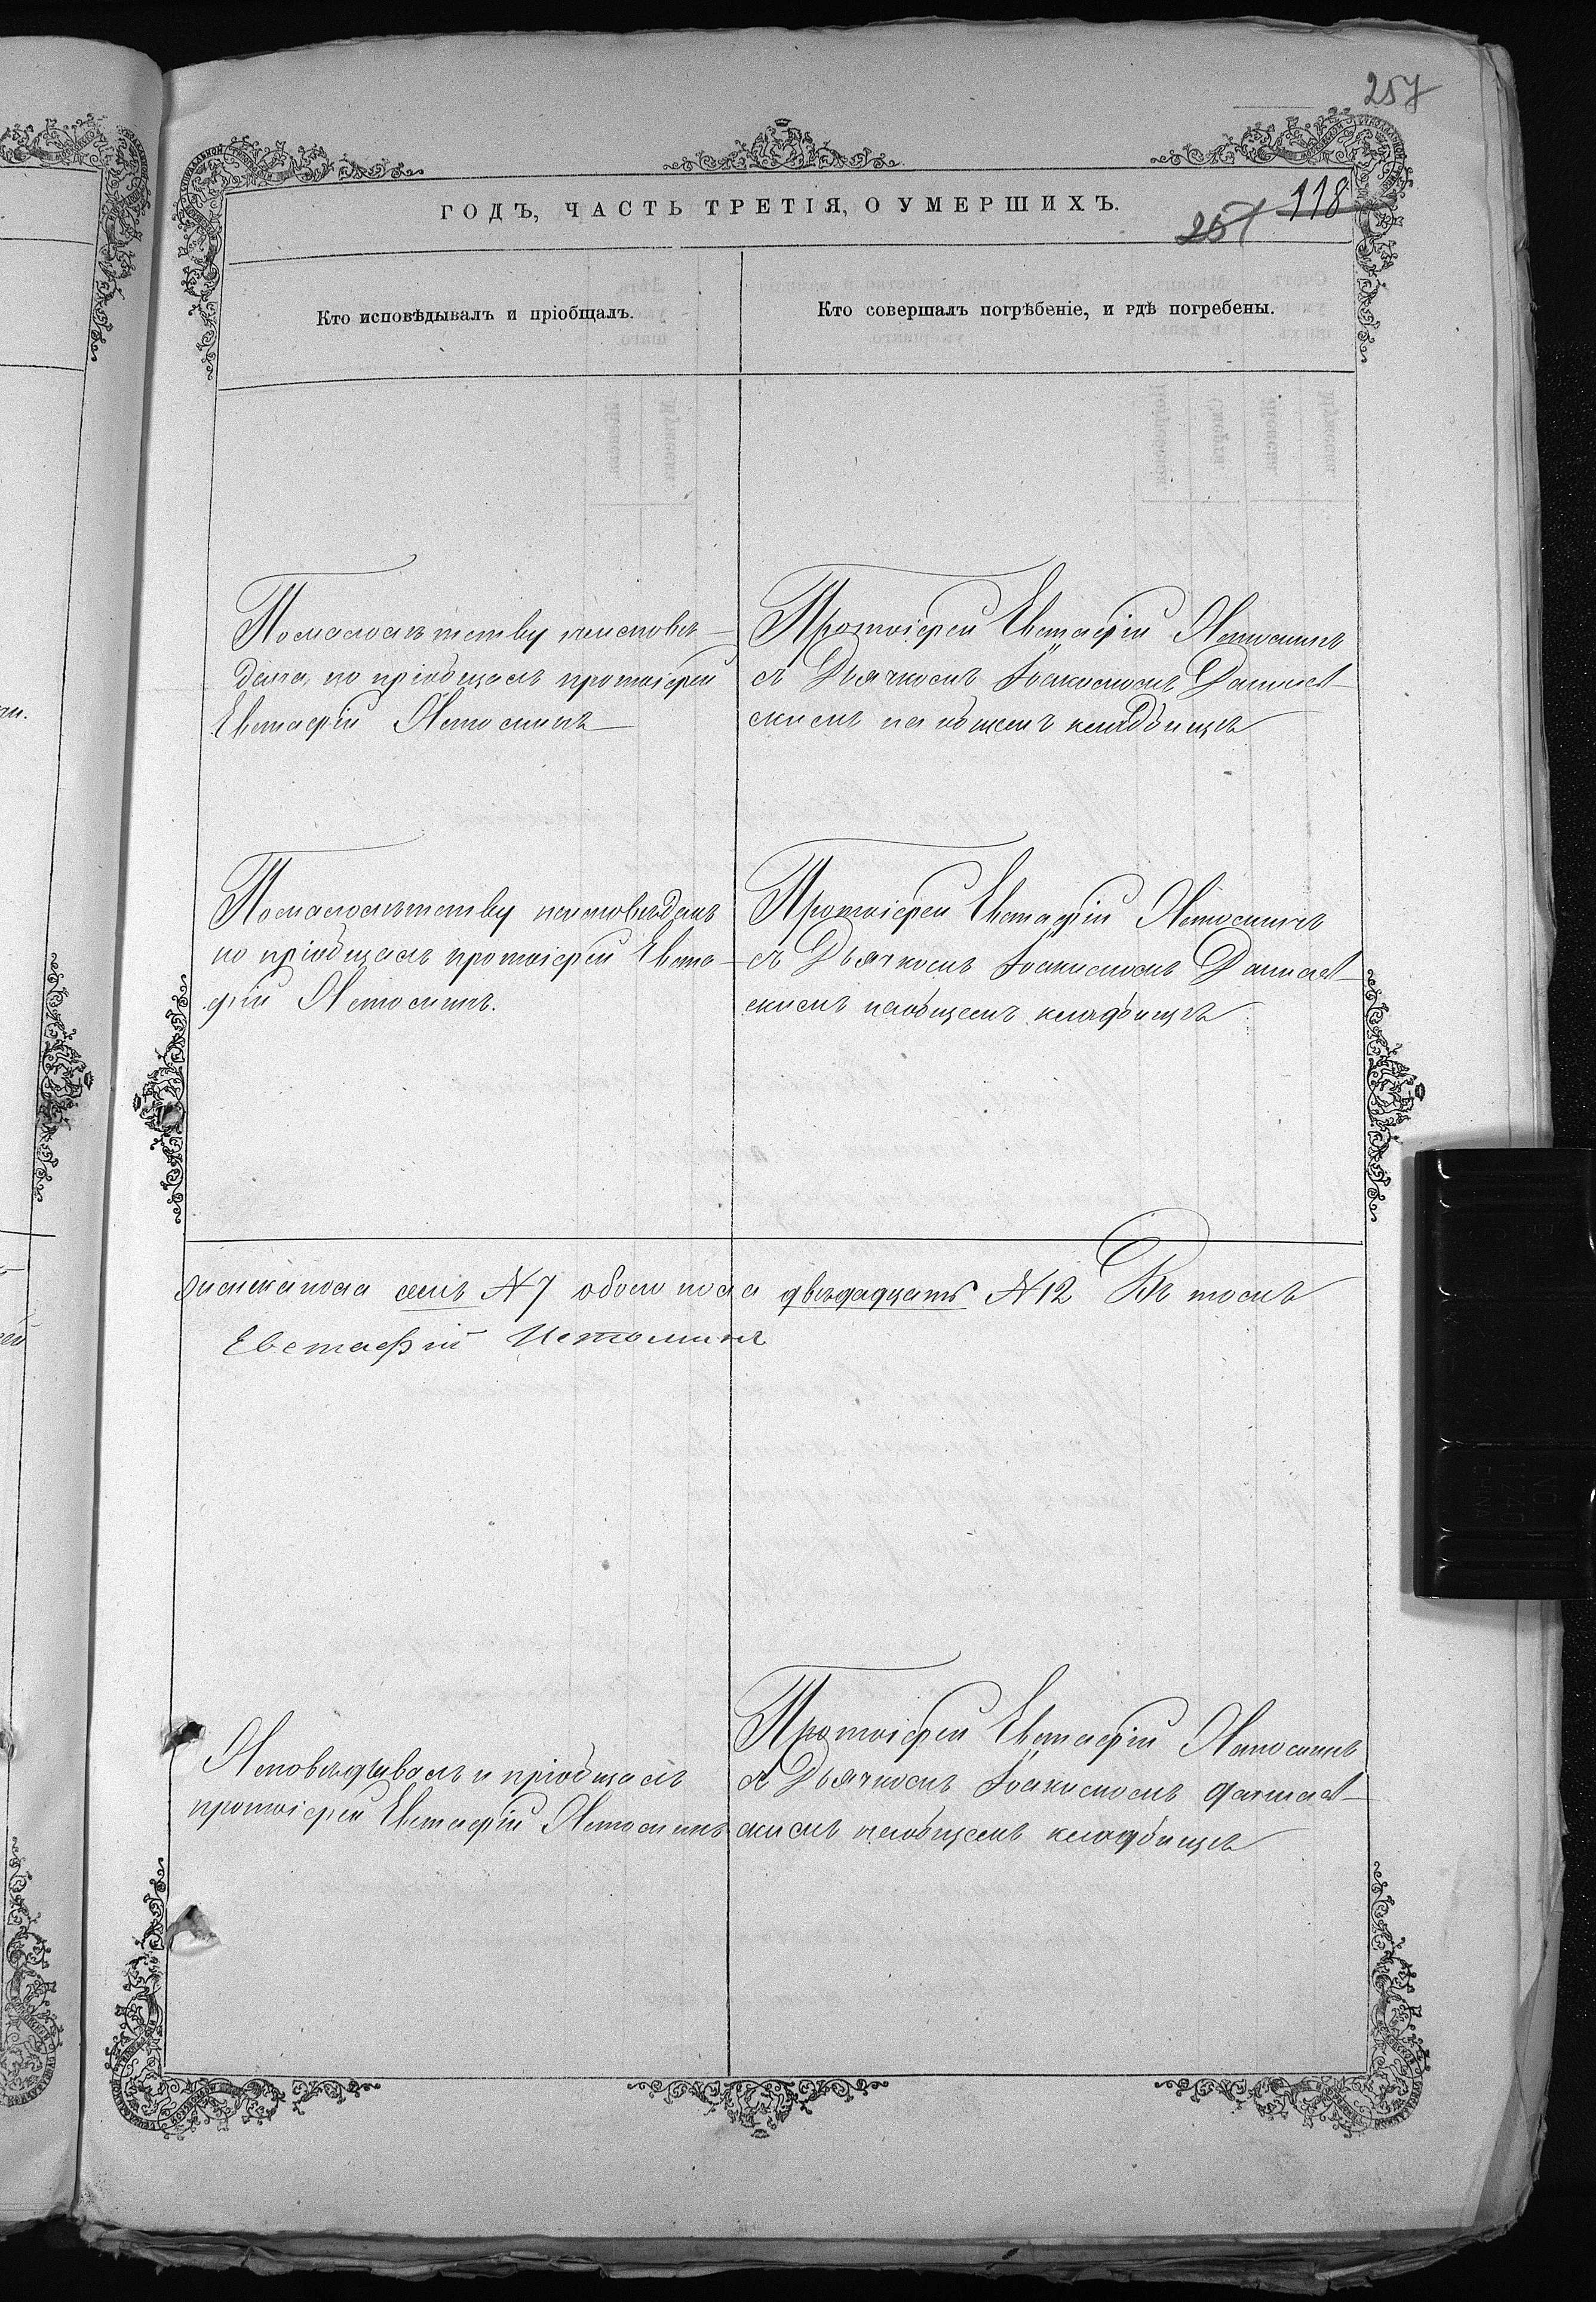 257
ГОДЪ, ЧАСТЬ ТРЕТІЯ, О УМЕРШИХЪ.
257 118
Кто исповѣдывалъ и пріобщалъ.
Кто совершалъ погрѣбеніе, и гдѣ погребены.
Помалолѣтству неисповѣ-
дана, но пріобщалъ протоіерей
Евстафій Истоминъ
Протоіерей Евстафій Истоминъ
съ Дьячкомъ Іоакимомъ
скимъ на общемъ кладбищѣ
Помалолѣтству неисповѣданъ
но пріобщалъ протоіерей Евста-
фій Истоминъ.
Протоіерей Евстафій Истоминъ
съ Дьячкомъ Іоакимомъ
скимъ наобщемъ кладбищѣ
женска пола семь N 7 обоего пола двѣнадцать N 12 Въ томъ
Евстафій Истоминъ
Исповѣдывалъ и пріобщалъ
протоіерей Евстафій Истоминъ
Протоіерей Евстафій Истоминъ
съ Дьячкомъ Іоакимомъ
скимъ наобщемъ кладбищѣ